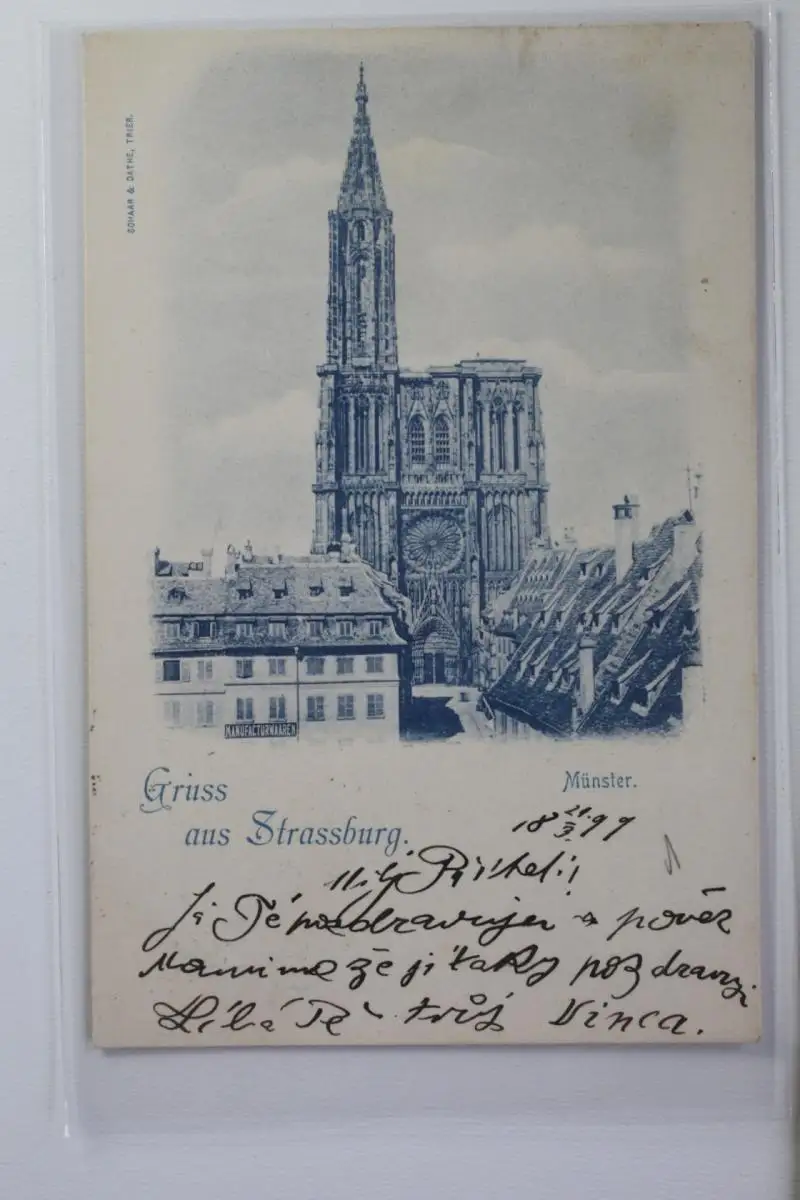 SCHAAR & DATHE, TRIER.
MANUFACTURWAAREN
Gruss
aus Strassburg.
Münster.
18 21./9. 99
Milý Příteli!
Já Tě pozdravuju a pověz
Mamince že ji taky pozdravuji
Líbá Tě tvůj Vinca.